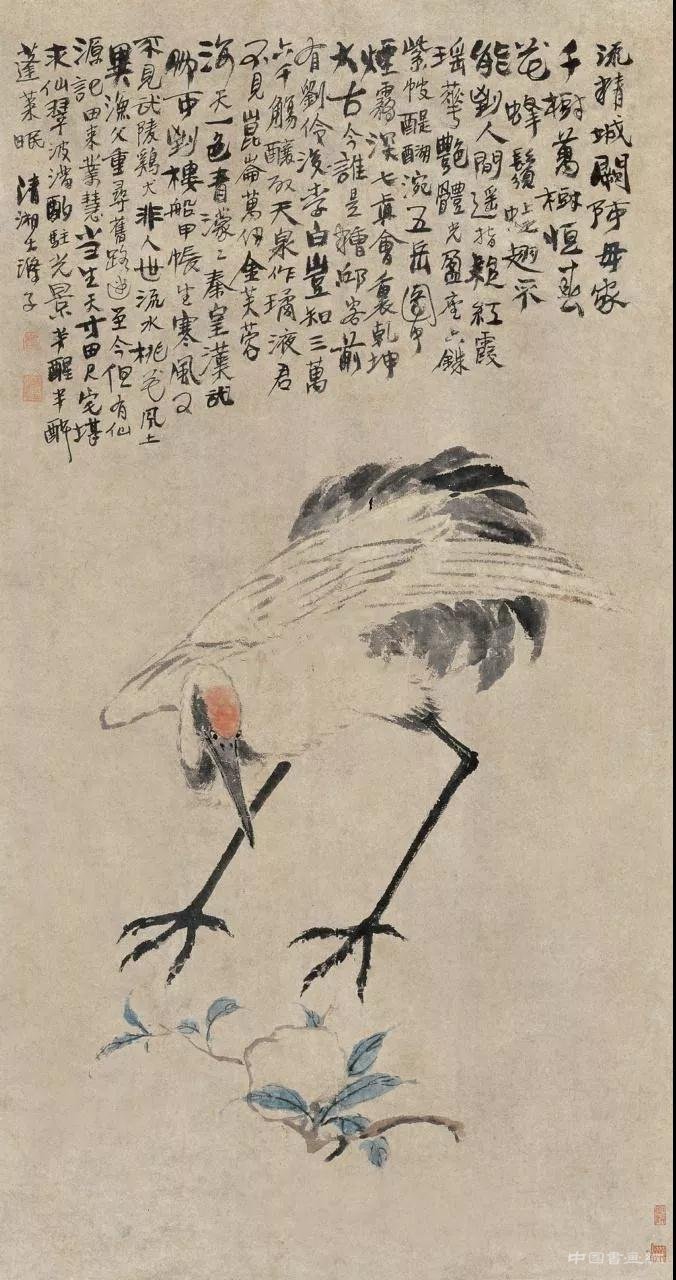 流精城闕陣母家
千樹萬樹恒春
花蜂鬚蝶翅不
能到人間遥指頳紅霞
瑶華艷體光盈座六銖
紫帔醍醐涴五岳圖中
煙霧深七真會裏乾坤
大古今誰是糟邱客前
有劉伶後李白豈知三萬
六千觴釀取天泉作璚液君
不見崑崙萬仞金芙蓉
海天一色青濛〻秦皇漢武
那可到樓船甲帳生寒風又
不見武陵鷄犬非人世流水桃花風土
異漁父重尋舊路迷至今但有仙
源記田來業慧當生天寸田尺宅堪
求仙翠波滿酌駐光景半醒半醉
蓬萊眠 清湘大滌子
中国書画